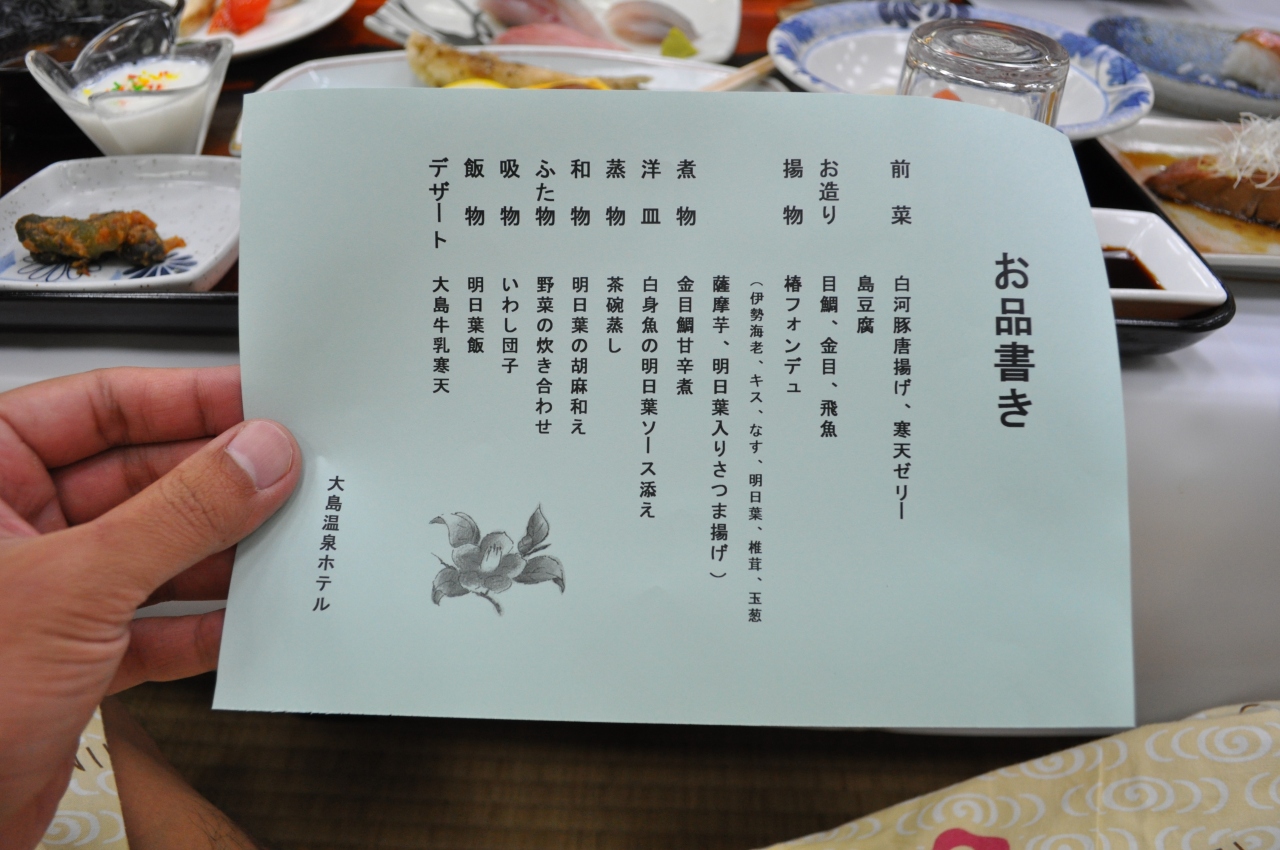 お品書き
前菜 白河豚唐揚げ、寒天ゼリー
島豆腐
お造り 目鯛、金目、飛魚
揚物 椿フォンデュ
(伊勢海老、キス、なす、明日葉、椎茸、玉葱
薩摩芋、明日葉入りさつま揚げ)
煮物 金目鯛甘辛煮
洋皿 白身魚の明日葉ソース添え
蒸物 茶碗蒸し
和物 明日葉の胡麻和え
ふた物 野菜の炊き合わせ
吸物 いわし団子
飯物 明日葉飯
デザート 大島牛乳寒天
大島温泉ホテル